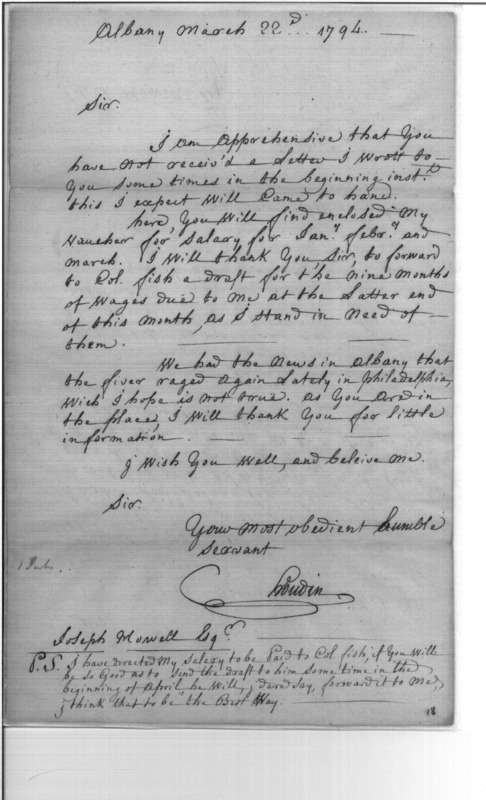 Albany March 22d... 1794. —
Sir.
I am Apprehensive that You
have Not receiv'd a Letter I Wrott to
You Some times in the beginning inst.t
this I expect Will Came to hand.
here You Will find enclosed My
Vaucher for Salary for Jan.y febr.y and
March. I Will thank You, Sir, to forward
to Col. fish a draft for the Nine Months
of Wages due to Me at the Latter end
of this Month, as I Stand in Need of —
them.
We had the News in Albany that
the fiver raged Again Lately in Philadelphia,
Wich I hope is not true. as You Are in
the place, I Will thank You for Little
information.
j Wish You Well, and beleive Me.
Sir.
Your Most obedient humble
Servant
Houdin
Joseph Howell Esq.r
P.S. I have directed My Salery to be Paid to Col. fish, if You Will
be So Good as to Send the draft to him Some time in the
beginning of April, he Will, j dare Say, forward it to Me,
j think that to be the Best Way.
18